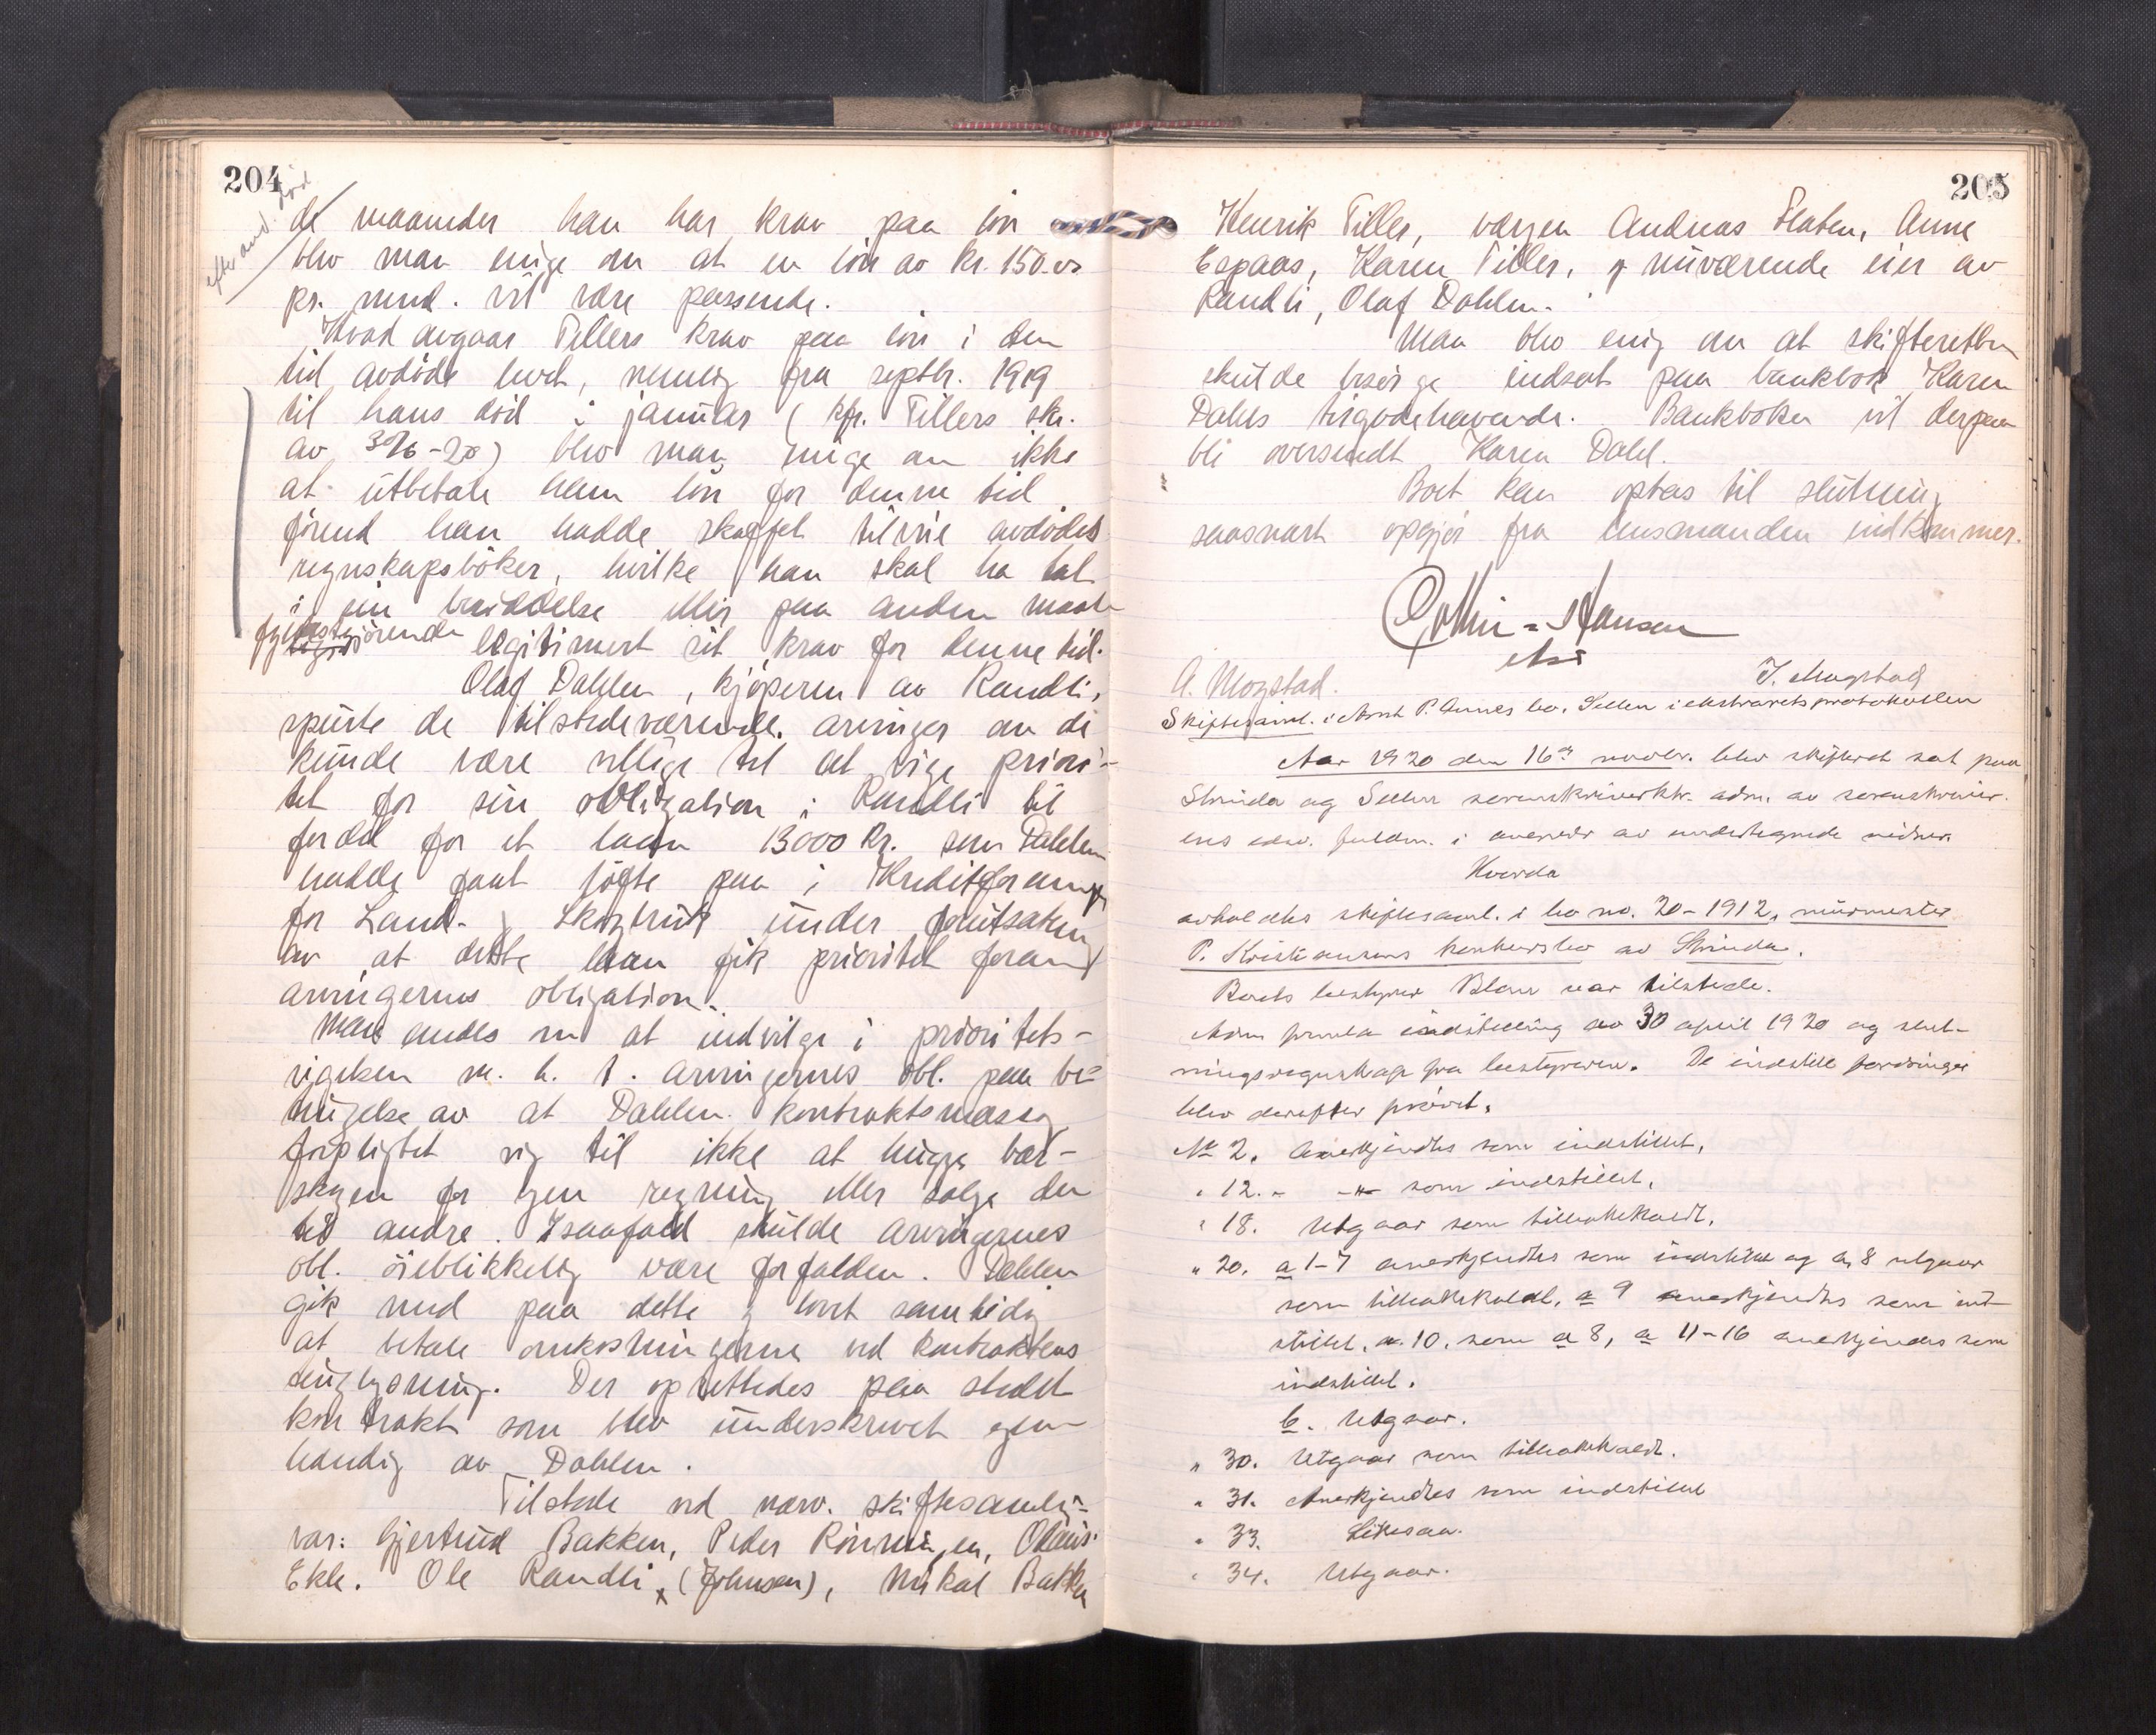 204
efter avd. död
de maaneder han har krav paa lön
blev man enige om at en lön av kr. 150.00
pr. mnd. vil være passende.
Hvad avgaar Tillers krav paa lön i den
tid avdöde levet, nemlig fra septbr. 1919
til hans död i januar (kfr. Tillers skr.
av 3/6-20) blev man enige om ikke
at utbetale ham lön for denne tid
förend han hadde skaffet tilveie avdödes
regnskapsböker, hvilke han skal ha tat
i sin besiddelse eller paa anden maate
fyldestgjörende legitimert sit krav for denne tid.
Olaf Dahlen, kjöperen av Randli,
spurte de tilstedeværende arvinger om de
kunde være villige til at vige priori-
tet for sin obligation i Randli til
fordel for et laan 13000 kr. som Dahlen
hadde faat löfte paa i Kreditforening
for Land- og Skogbruk under forutsætning
av at dette laan fik prioritet foran
arvingernes obligation.
Man enedes om at indvilge i prioritets-
vigelsen m. h. t. arvingernes obl. paa be-
tingelse av at Dahlen kontraktsmæssig
forpligtet sig til ikke at hugge bar-
skogen for egen regning eller sælge den
til andre. Isaafald skulde arvingernes
obl. öieblikkelig være forfalden. Dahlen
gik med paa dette og lovet samtidig
at betale omkostningerne ved kontraktens
tinglysning. Der oprettedes paa stedet
kontrakt som blev underskrevet egen-
hændig av Dahlen.
Tilstede ved nærv. skiftesamling
var: Gjertrud Bakken, Peder Rönningen, Olaus
Ekle. Ole Randli (Johnsen), Mikal Bakken
205
Henrik Tiller, værgen Andreas Flaten, Anne
Espaas, Karen Tiller, og nuværende eier av
Randli, Olaf Dahlen.
Man blev enig om at skifteretten
skulde besörge indsat paa bankbok Karen
Dahls tilgodehavende. Bankboken vil derpaa
bli oversendt Karen Dahl.
Boet kan optas til slutning
saasnart opgjör fra lensmanden indkommer.
Collin-Hansen
A. Mogstad. J. Mogstad
Skiftesaml. i Arnt P. Aunes bo, Selbu i ekstraretsprotokollen
Aar 1920 den 16de novbr. blev skifteret sat paa
Strinda og Selbu sorenskriverktr. adm. av sorenskriver-
ens edsv. fuldm. i overvær av undertegnede vidner.
Hvorda
avholdtes skiftesaml. i bo no. 20-1912, murmester
P. Kristiansens konkursbo av Strinda.
Boets bestyrer var tilstede.
Adm. fremla indstilling av 30 april 1920 og slut-
ningsregnskap fra bestyreren. De indstillte fordringer
blev derefter prövet.
No 2. Anerkjendtes som indstillet.
" 12. - -"- som indstillet.
" 18. Utgaar som tilbakekaldt.
" 20. a 1-7 anerkjendtes som indstillet og a 8 utgaar
som tilbakekaldt, a 9 anerkjendtes som ind-
stillet, a. 10. som a 8, a 11-16 anerkjendes som
indstillet.
b. Utgaar.
" 30. Utgaar som tilbakekaldt.
" 31. Anerkjendtes som indstillet
" 33. Likesaa.
" 34. Utgaar.